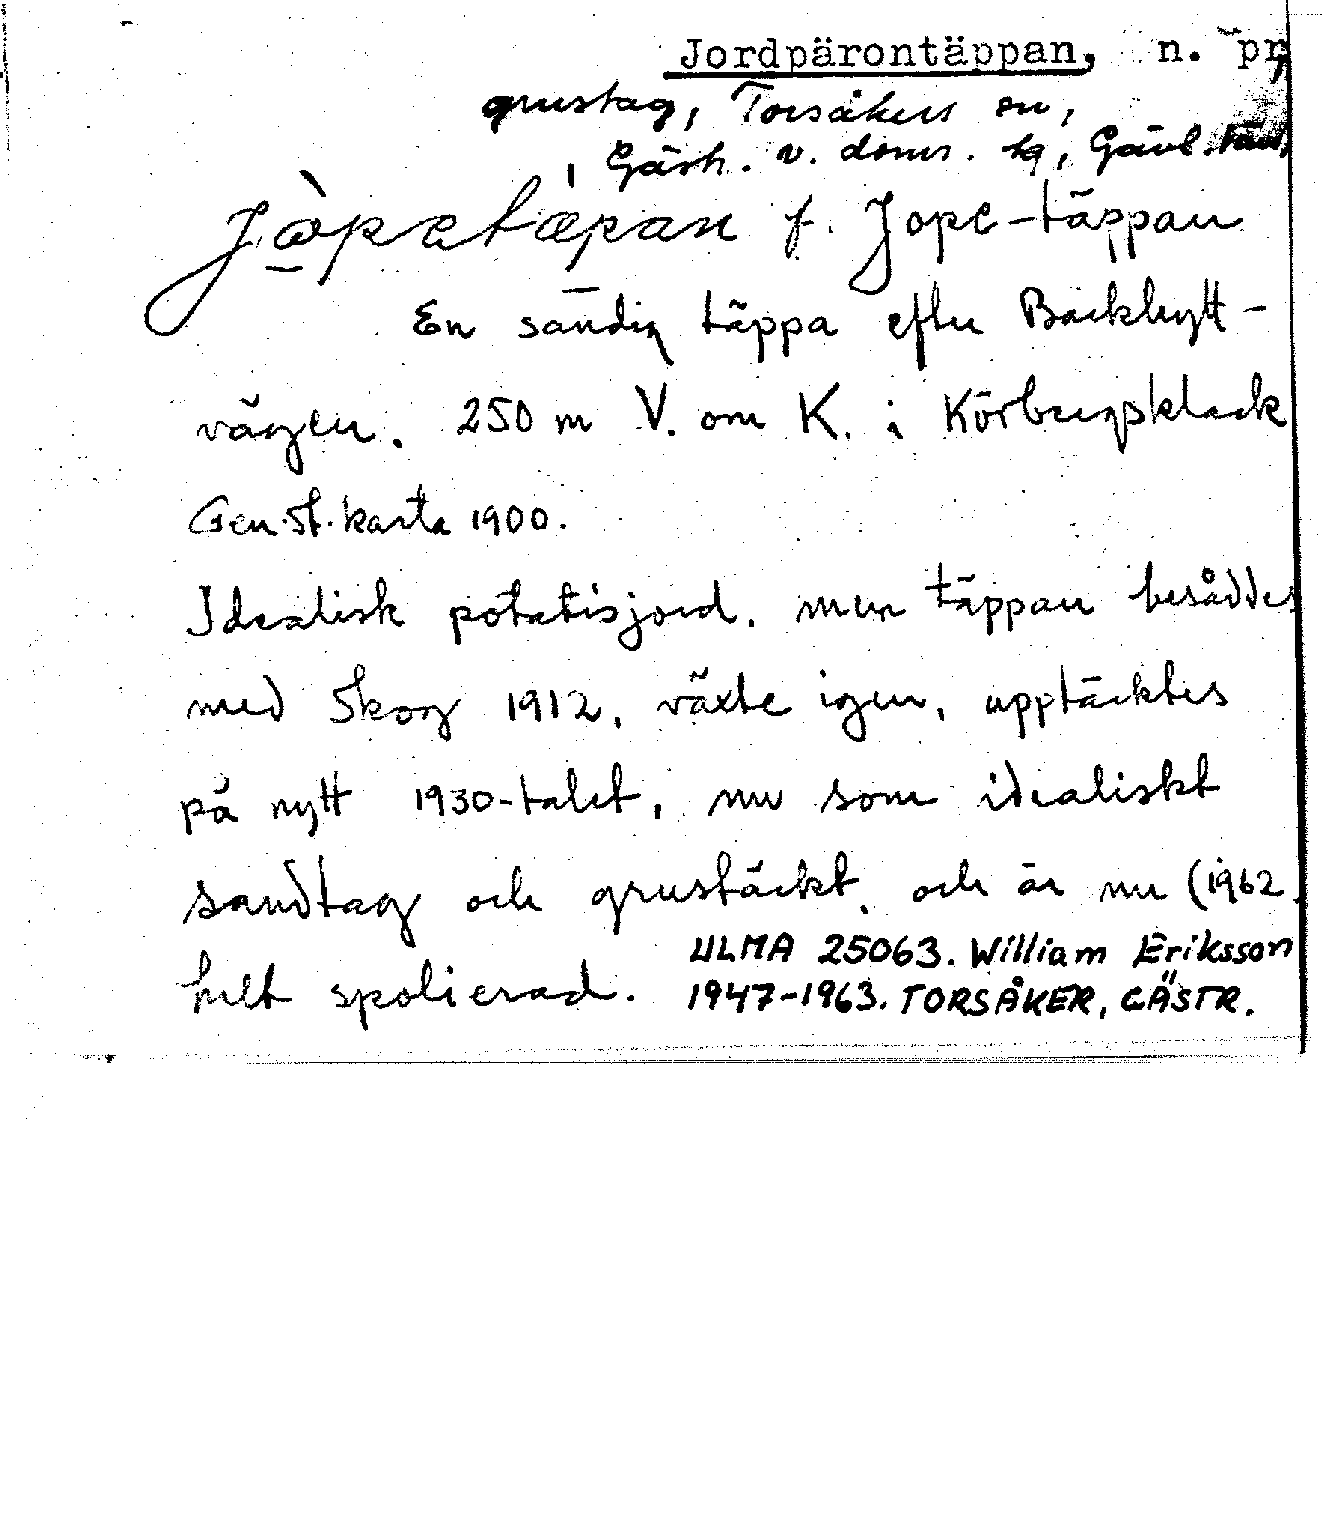 Jordpärontäppan, n. pr,
grustag, Torsåkers sn,
Gästr. v. doms. tg, Gävl. län,
jòpetæpan f. Jope-täppan
En sandig täppa efter Backhytt-
vägen. 250 m V. om K. i Körbergsklack
Gen.st.karta 1900.
Idealisk potatisjord, men täppan besåddes
med skog 1912, växte igen, upptäcktes
på nytt 1930-talet, nu som idealiskt
sandtag och grustäckt, och är nu (1962
helt spolierad.
ULMA 25063. William Eriksson
1947-1963. TORSÅKER, GÄSTR.